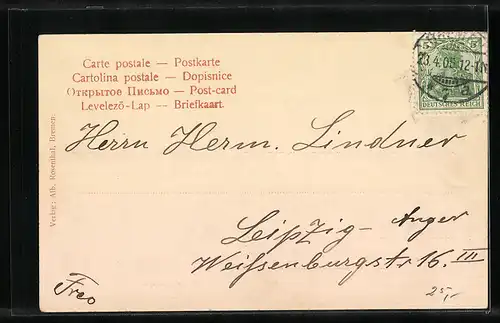 Carte postale — Postkarte
Cartolina postale — Dopisnice
Открытое Письмо — Post-card
Levelező-Lap -- Briefkaart.
5 5
23.4.05.12-1N
DEUTSCHES REICH
Herrn Herm. Lindner
Leipzig - Anger
Weissenburgstr 16. III
Verlag: Alb. Rosenthal, Bremen.
Frco
25,-